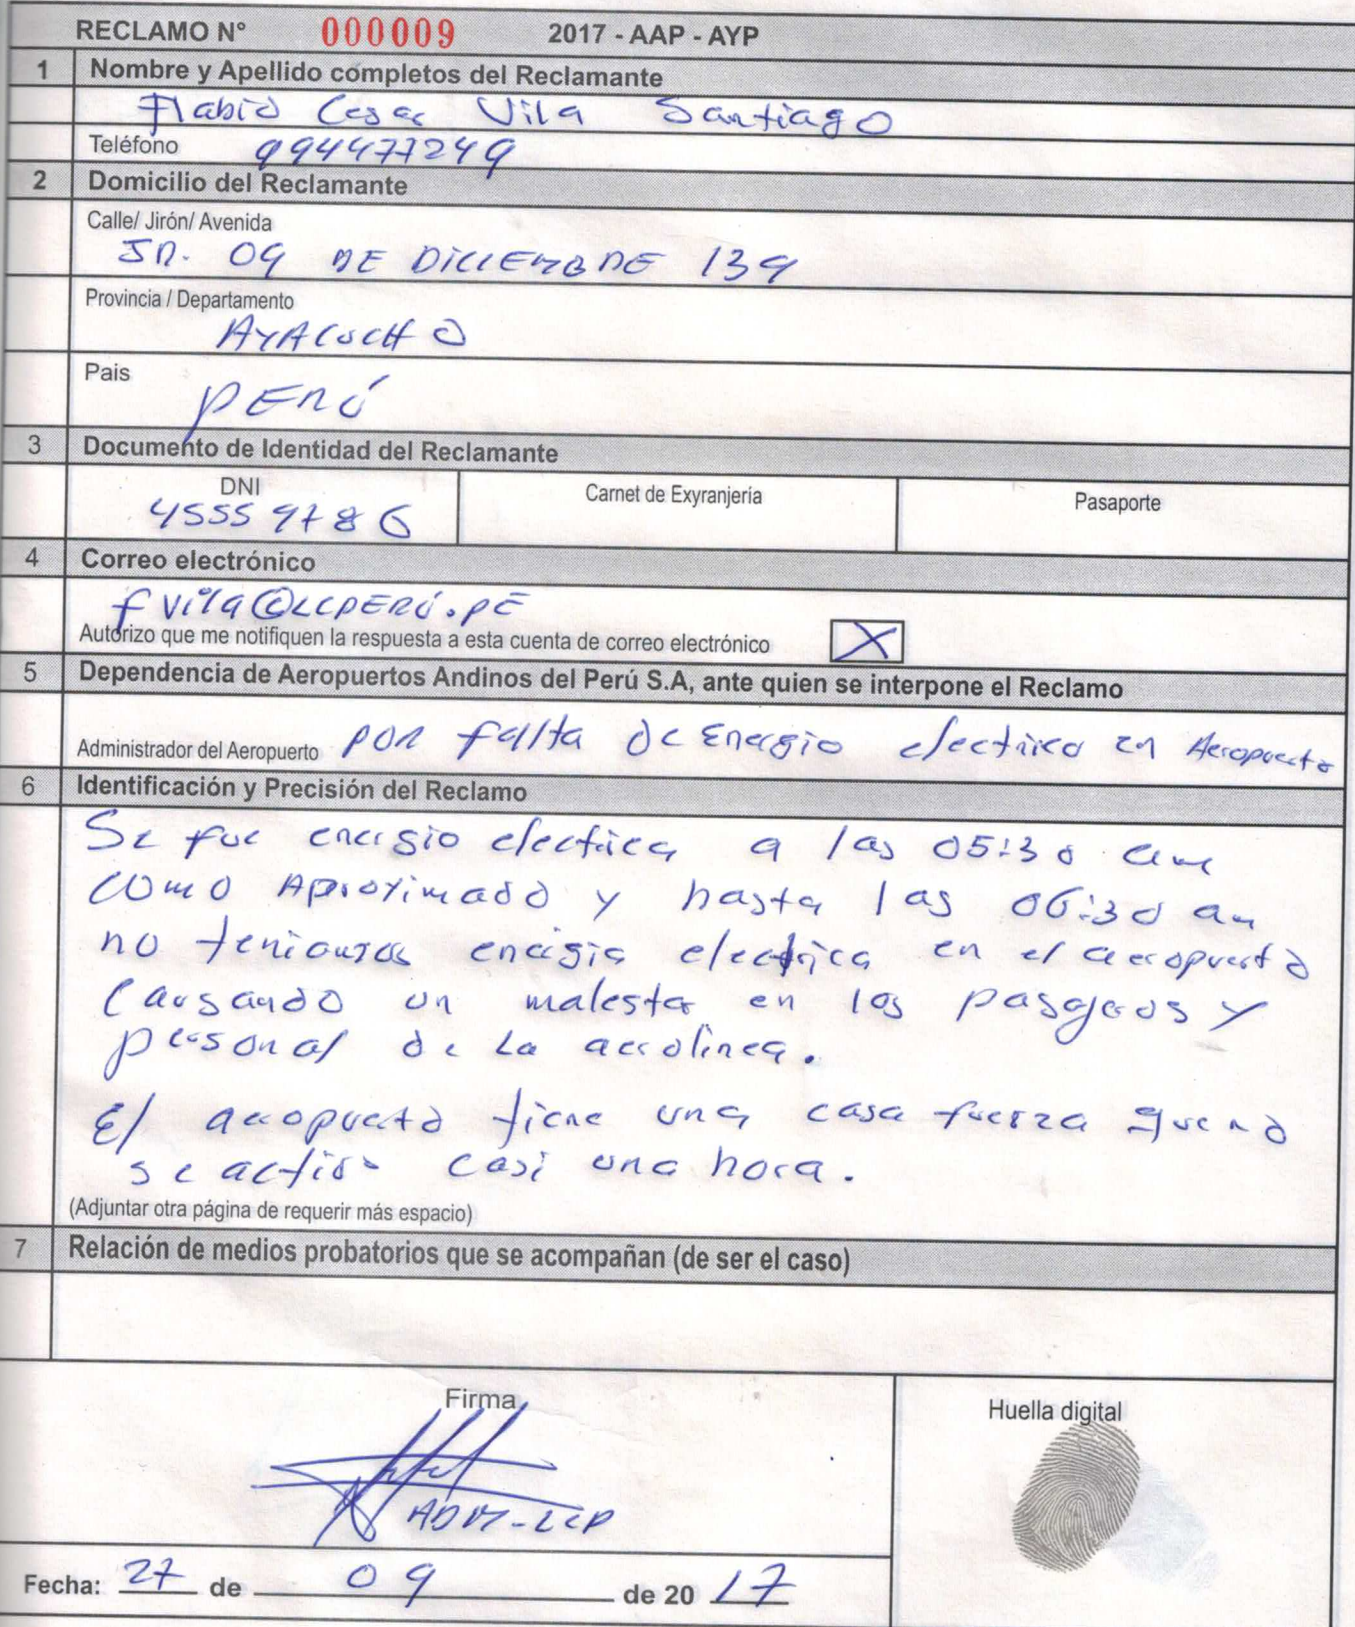 RECLAMO N° 000009 2017 - AAP - AYP
1 Nombre y Apellido completos del Reclamante
Flabio Cesar Vila Santiago
Teléfono 994477249
2 Domicilio del Reclamante
Calle/ Jirón/ Avenida
JR. 09 DE DICIEMBRE 139
Provincia / Departamento
AYACUCHO
Pais
PERÚ
3 Documento de Identidad del Reclamante
DNI Carnet de Exyranjería Pasaporte
45559786
4 Correo electrónico
fvila@LCPERÚ.PE
Autorizo que me notifiquen la respuesta a esta cuenta de correo electrónico X
5 Dependencia de Aeropuertos Andinos del Perú S.A, ante quien se interpone el Reclamo
Administrador del Aeropuerto POR falta de Energio electrico en Aeropuerto
6 Identificación y Precisión del Reclamo
Se fue energio electrica a las 05:30 am
como Aproximado y hasta las 06:30 am
no teniamos energia electrica en el aeropuerto
Causando un malestar en los pasajeros y
personal de La aerolinea.
El aeropuerto tiene una casa fuerza que no
se activo casi una hora.
(Adjuntar otra página de requerir más espacio)
7 Relación de medios probatorios que se acompañan (de ser el caso)
Firma Huella digital
ADM-LCP
Fecha: 27 de 09 de 2017